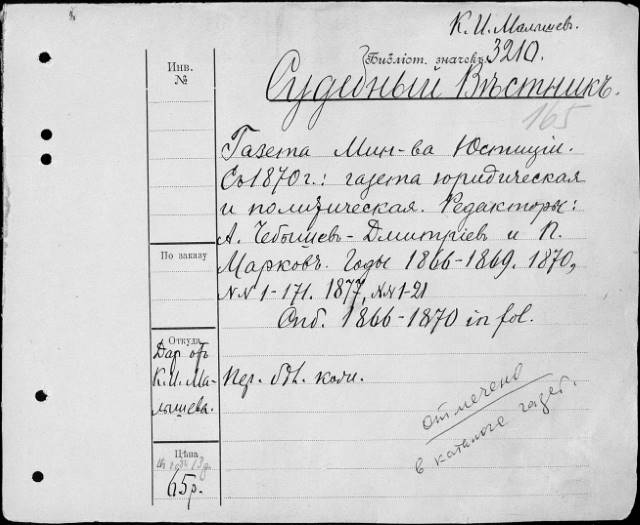 К. И. Малышевъ.
Библіот. значекъ 3210.
Инв.
№
Судебный Вѣстникъ.
165
Газета Мин-ва Юстиціи.
Съ 1870 г.: газета юридическая
и политическая. Редакторы:
А. Чебышевъ-Дмитріевъ и П.
По заказу
Марковъ. Годы 1866-1869. 1870,
№№ 1-171. 1877, №№ 1-21
Спб. 1866-1870 in fol.
Откуда
Даръ отъ
К. И. Ма-
лышева.
Пер. библ. кол.
отмечено
в каталоге газет.
Цѣна
65 р.